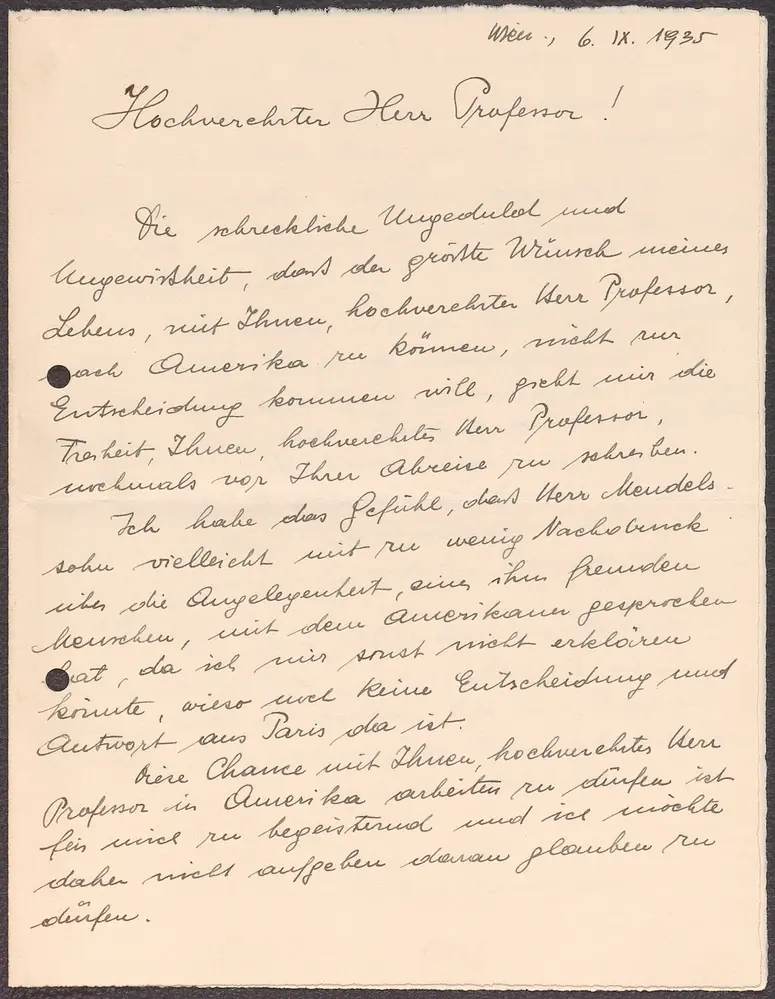 Wien., 6. IX. 1935
Hochverehrter Herr Professor!
Die schreckliche Ungeduld und
Ungewißheit, daß der größte Wunsch meines
Lebens, mit Ihnen, hochverehrter Herr Professor,
nach Amerika zu können, nicht zur
Entscheidung kommen will, giebt mir die
Freiheit, Ihnen, hochverehrter Herr Professor,
nochmals vor Ihrer Abreise zu schreiben.
Ich habe das Gefühl, daß Herr Mendels-
sohn vielleicht mit zu wenig Nachdruck
über die Angelegenheit, eines ihm fremden
Menschen, mit dem Amerikaner gesprochen
hat, da ich mir sonst nicht erklären
könnte, wieso noch keine Entscheidung und
Antwort aus Paris da ist.
Diese Chance mit Ihnen, hochverehrter Herr
Professor in Amerika arbeiten zu dürfen ist
für mich zu begeisternd und ich möchte
daher nicht aufgeben daran glauben zu
dürfen.